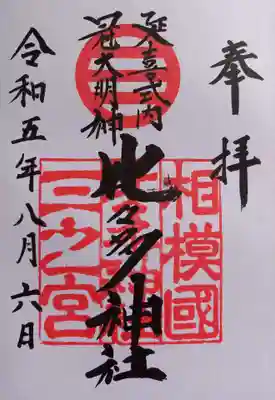 奉拝
延喜式内
冠大明神
比々多神社
相模國
三之宮
令和五年八月六日